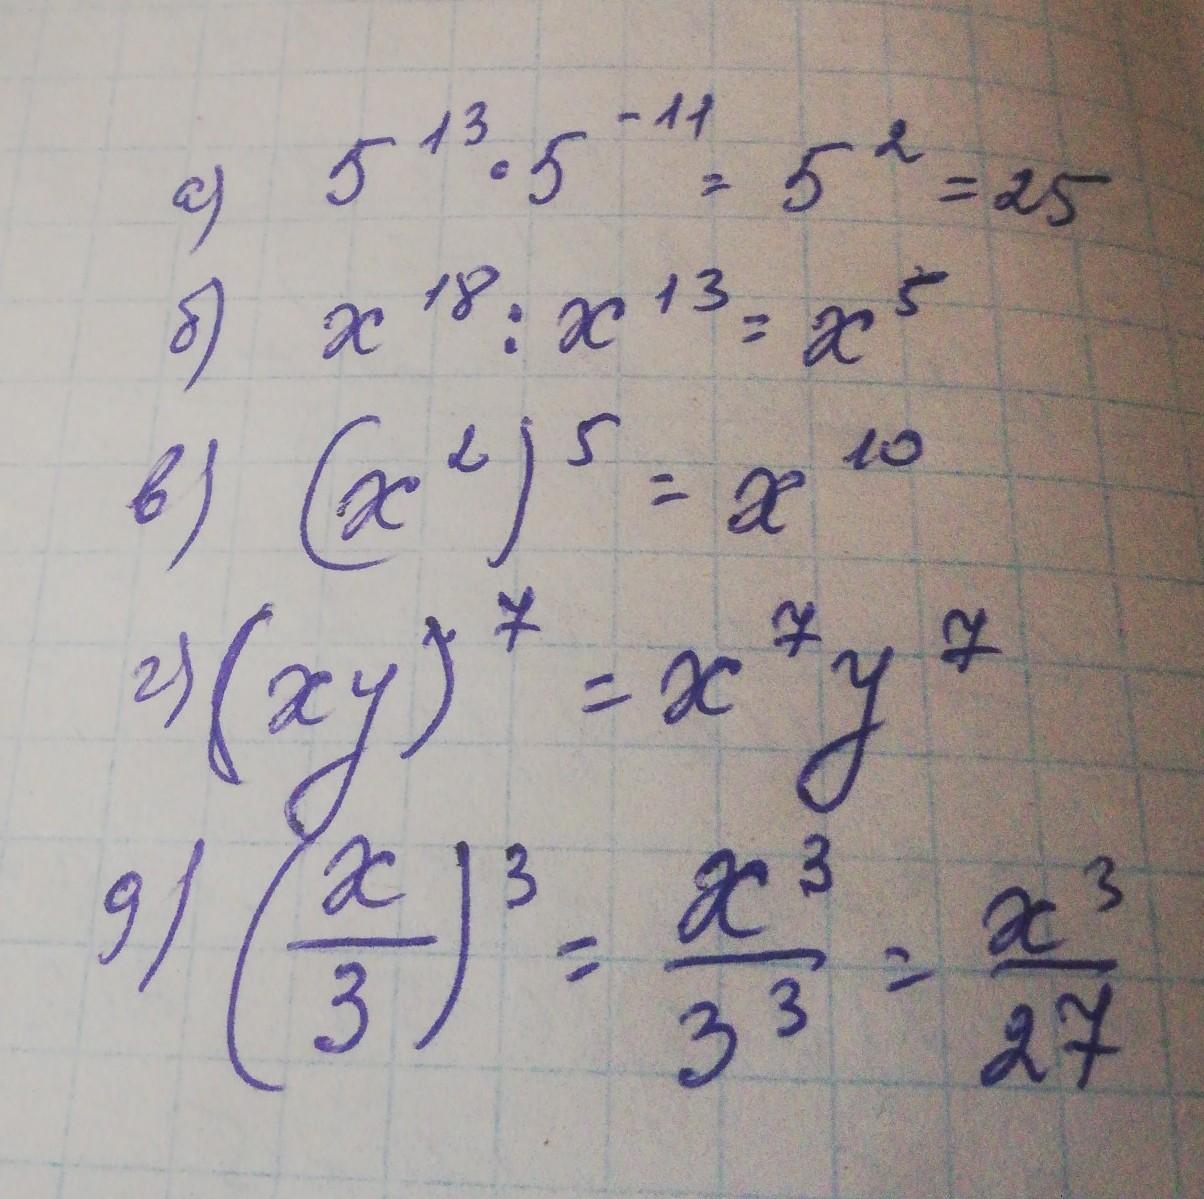 а) 5^13 · 5^-11 = 5^2 = 25
б) x^18 : x^13 = x^5
в) (x^2)^5 = x^10
г) (xy)^7 = x^7 y^7
д) (x/3)^3 = x^3/3^3 = x^3/27